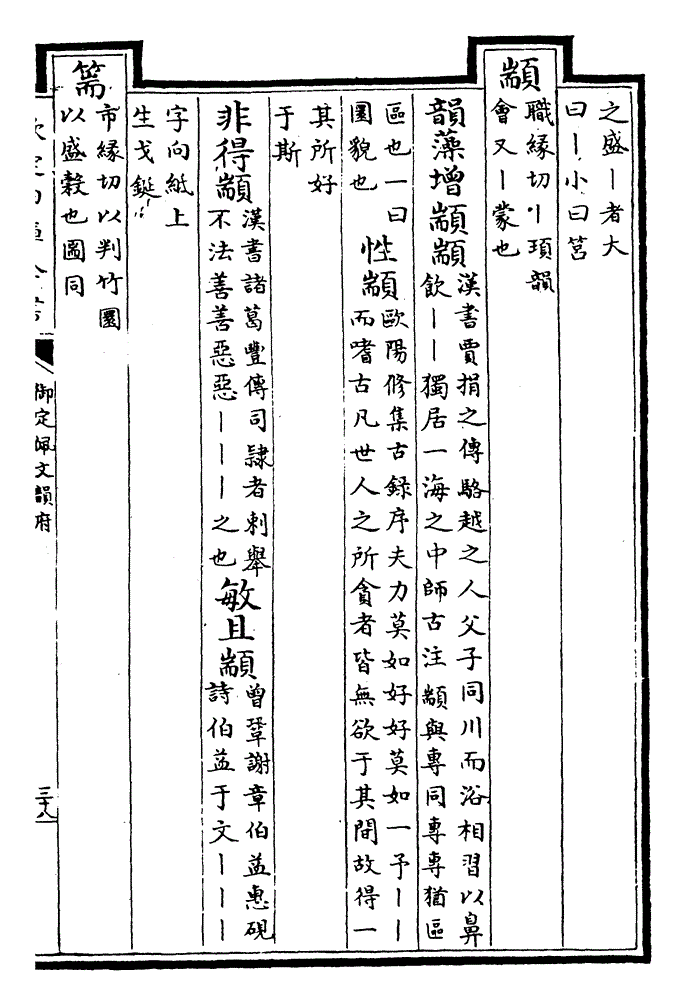 之盛丨者大
曰丨小曰筥
顓
職緣切丨頊韻
會又丨蒙也
韻藻增顓顓
漢書賈捐之傳駱越之人父子同川而浴相習以鼻
飲丨丨獨居一海之中師古注顓與專同專專猶區
區也一曰
圜貌也
性顓
歐陽修集古録序夫力莫如好好莫如一予丨丨
而嗜古凡世人之所貪者皆無欲于其間故得一
其所好
于斯
非得顓
漢書諸葛豐傳司隸者刺舉
不法善善惡惡丨丨丨之也
敏且顓
曾鞏謝章伯益惠硯
詩伯益于文丨丨丨
字向紙上
生戈鋋
篅
市緣切以判竹圜
以盛穀也圖同
御定佩文韻府
三十八